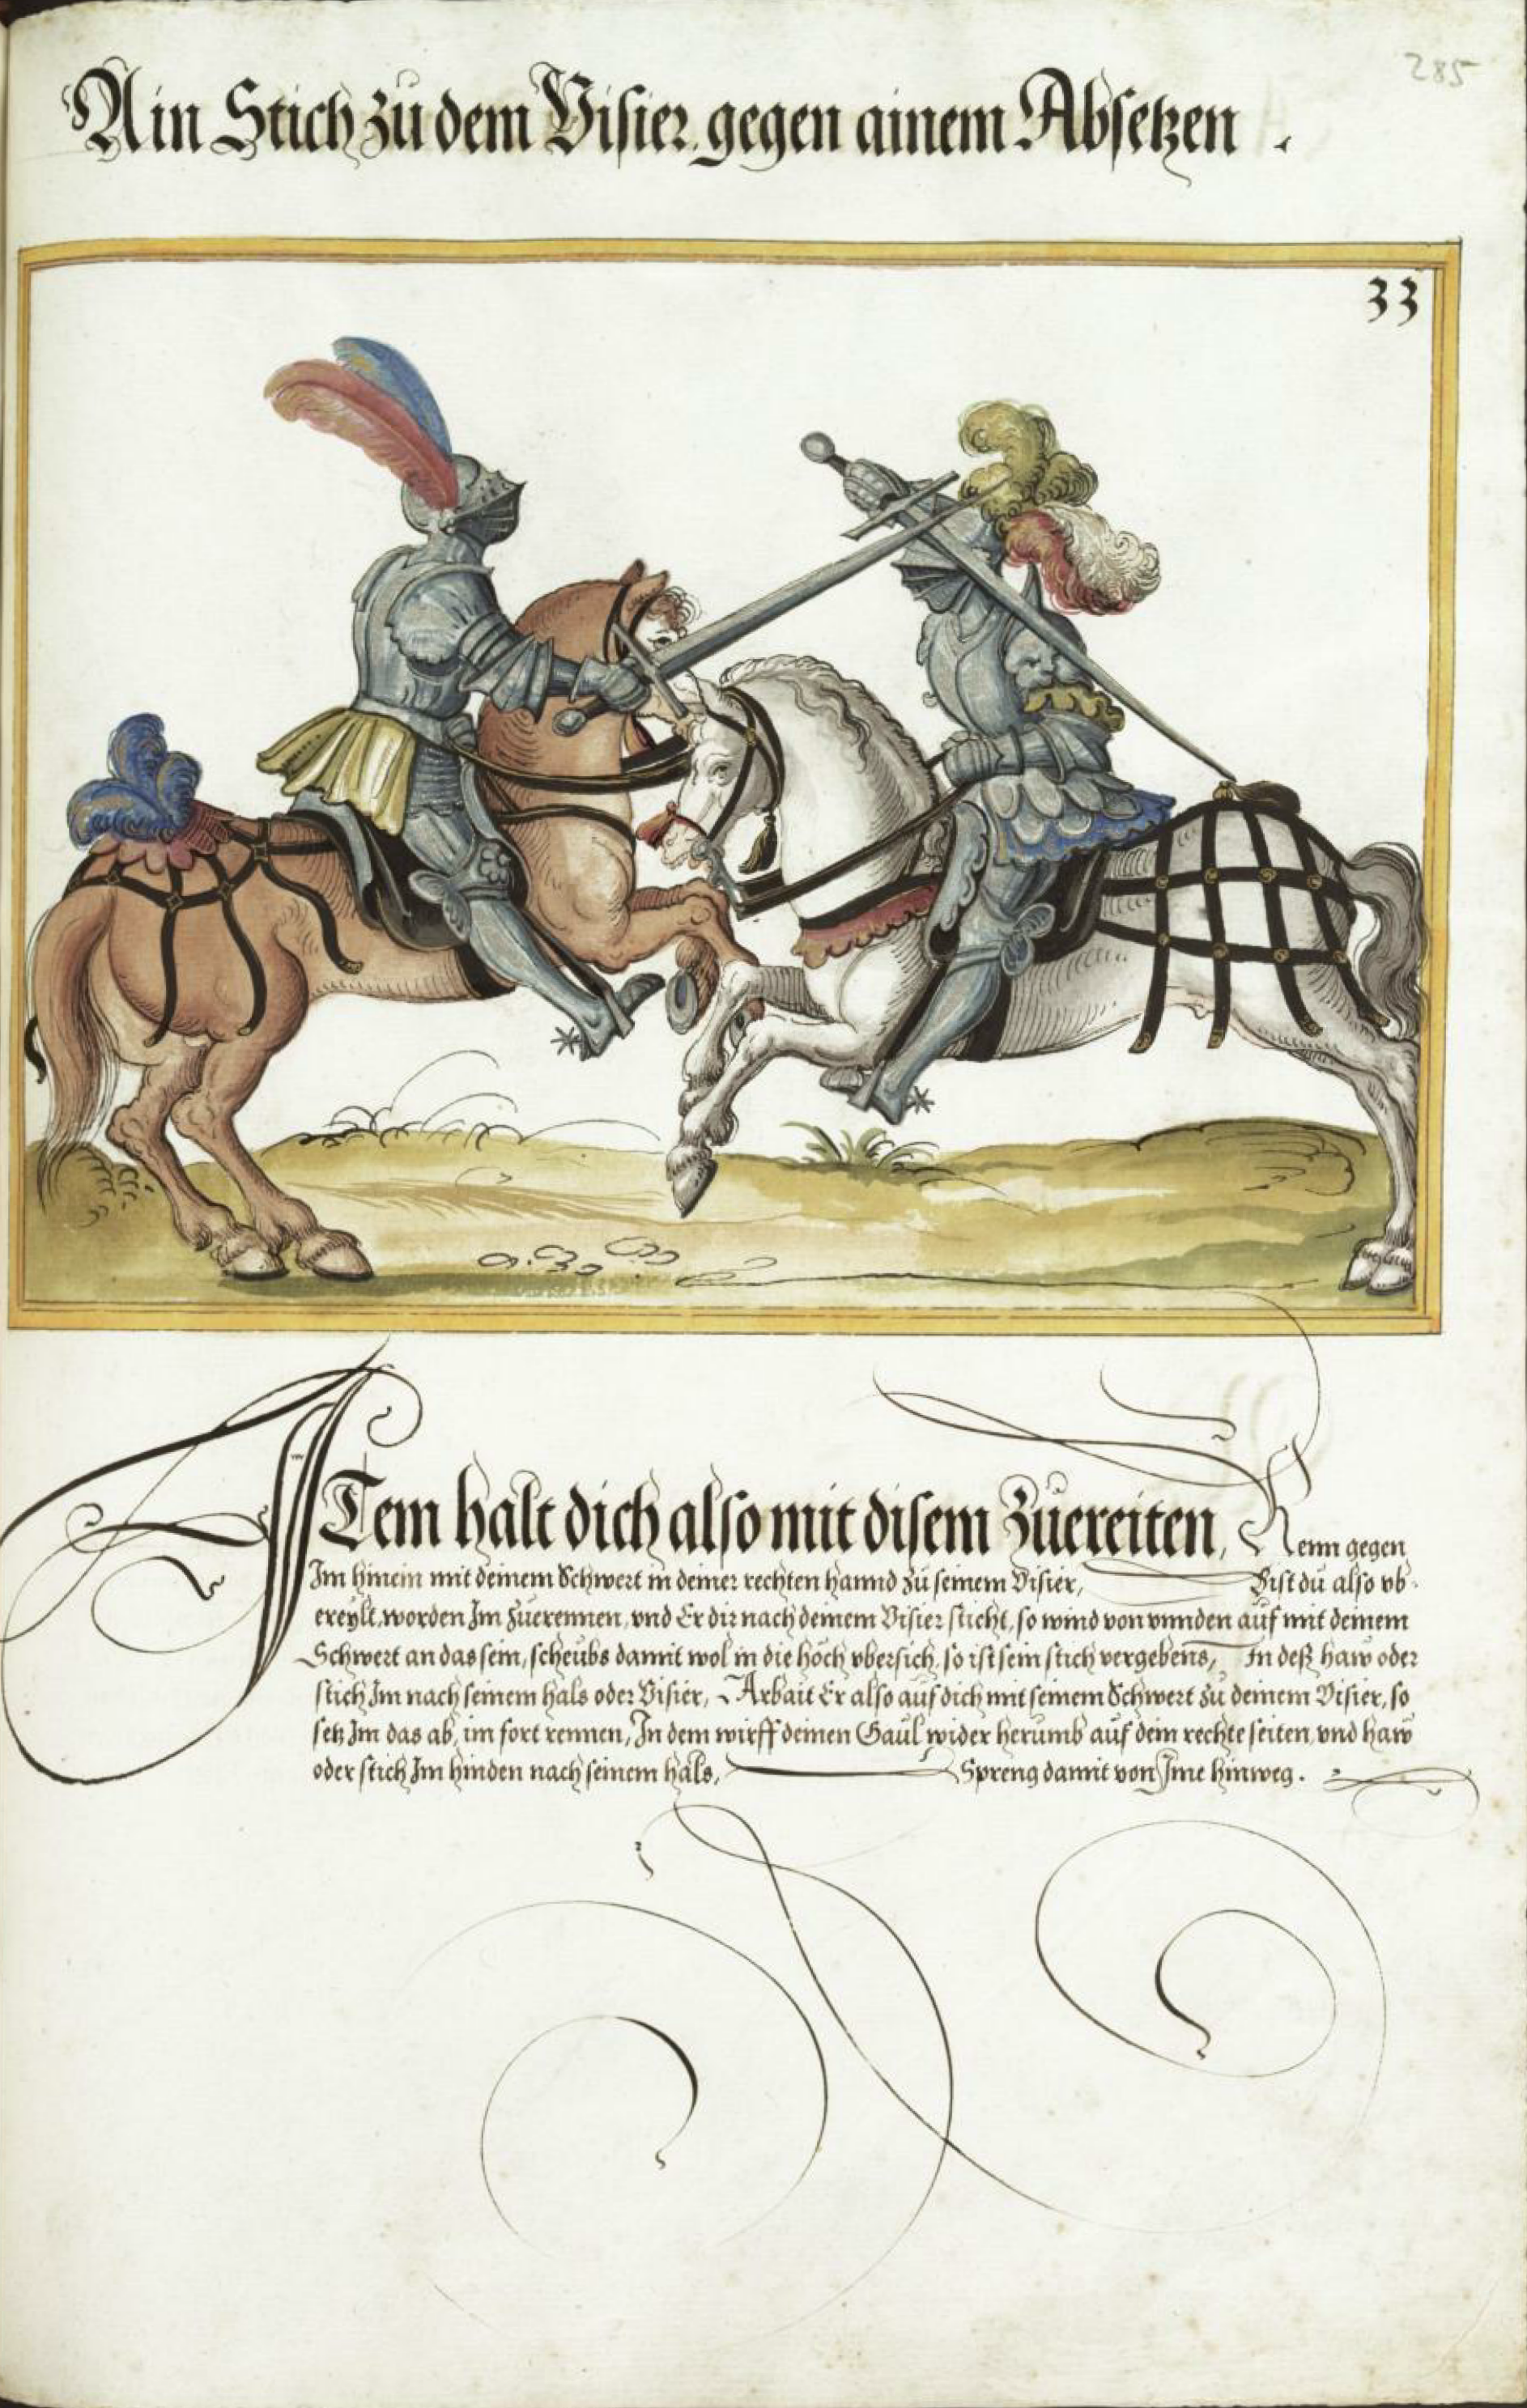 285
Ain Stich zu dem Visier gegen ainem Absetzen.
33
ITem halt dich also mit disem Zuereiten, Renn gegen
Im hinein mit deinem Schwert in deiner rechten hannd zu seinem Visier, Bist du also vb-
ereylt, worden Im Zuerennen, vnd Er dir nach deinem Visier sticht, so wind von vnnden auf mit deinem
Schwert an das sein, scheubs damit wol in die höch vbersich, so ist sein stich vergebens, In deß haw oder
stich Im nach seinem hals oder Visier, Arbait Er also auf dich mit seinem Schwert zu deinem Visier, so
setz Im das ab, im fort rennen, In dem wirff deinen Gaul wider herumb auf dein rechte seiten, vnd haw
oder stich Im hinden nach seinem hals, Spreng damit von Ime hinweg.